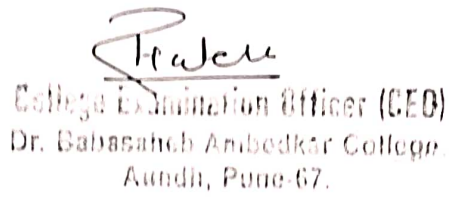 College Examination Officer (CEO)
Dr. Babasaheb Ambedkar College.
Aundh, Pune-67.